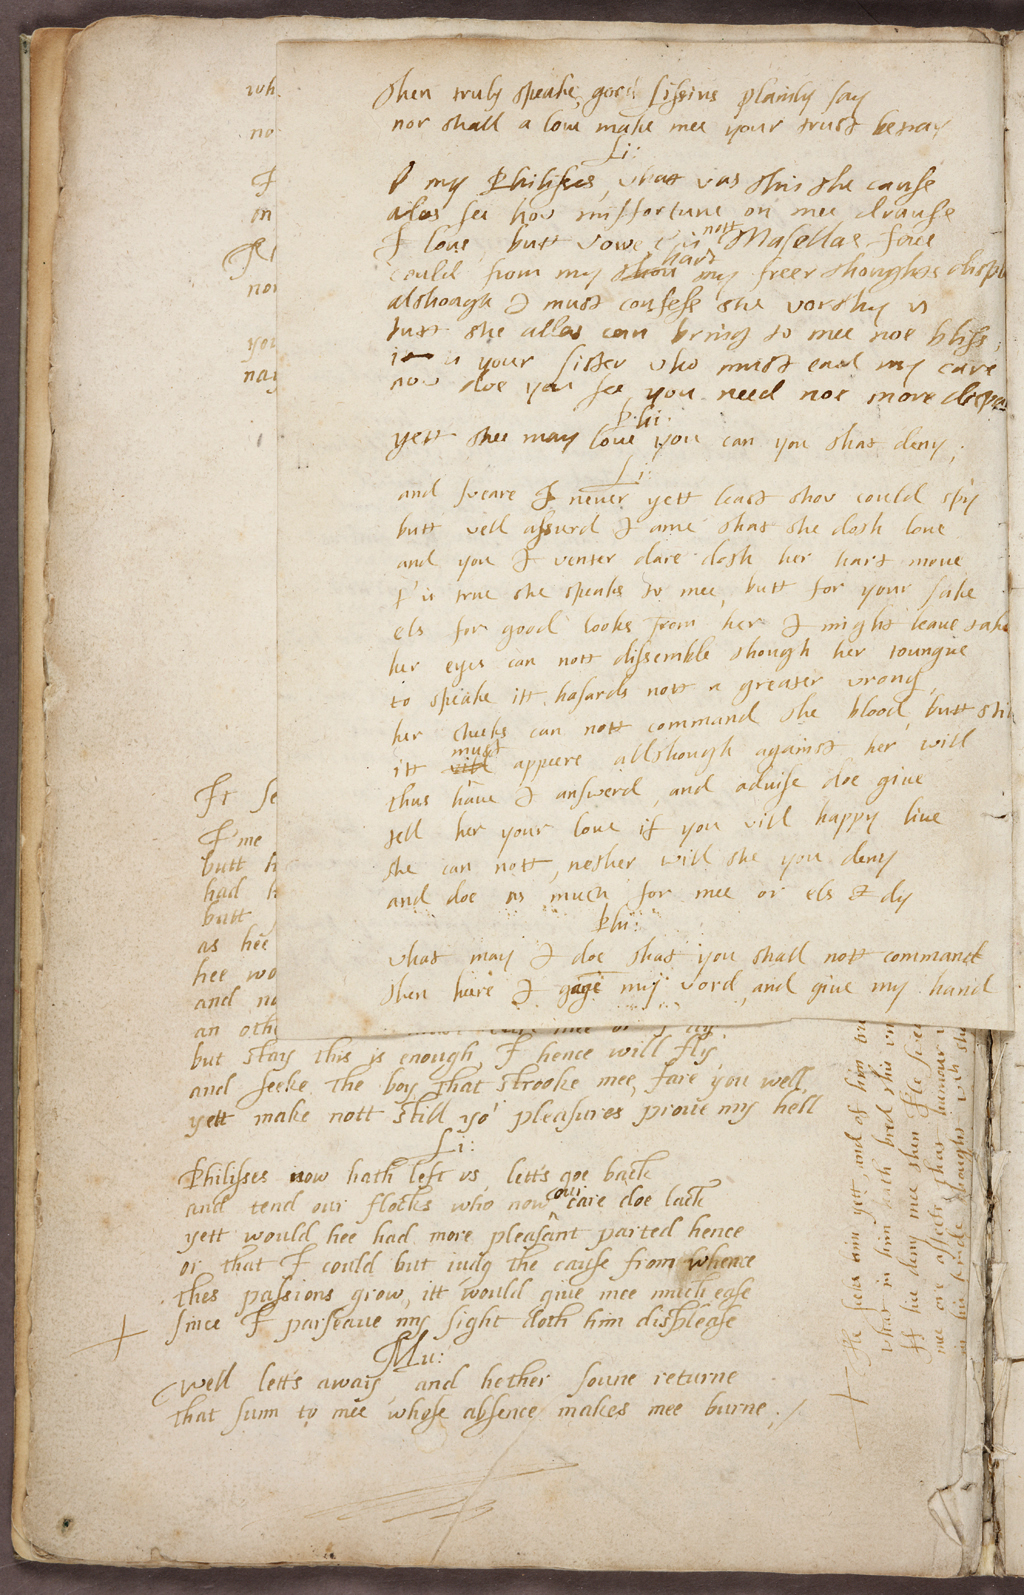 then truly speake, good Lissius plainly say
nor shall a love make mee your trust betray
Li:
O my Philisses, what was this the cause
alas see how missfortune on mee drause
I love, butt vowe t'is nott Masellas face
could from my thou hart my freer thoughts displ
although I must confess she worthy is
butt she allas can bring to mee noe bliss,
itt is your sister who must end my care
now doe you see you need noe more dispa
Phi:
yett shee may love you can you that deny,
Li:
and sweare I never yett least show could spy
butt well assurd I ame that she doth love
and you I venter dare doth her hart move
t'is true she speaks to mee, butt for your sake
els for good looks from her I might leave take
her eyes can nott dissemble though her toungue
to speake itt hasards nott a greater wrong,
her cheeks can nott command the blood, butt still
itt will must appeere allthough against her will
thus have I answerd, and advise doe give
tell her your love if you will happy live
she can nott, nether will she you deny
and doe as much for mee or els I dy
Phi:
what may I doe that you shall nott command
then heere I gage my word, and give my hand
wh
no
I
on
nor
you
nay
It se
I'me
butt h
had h
butt
as hee
hee wo
and no
an oth
but stay this is enough, I hence will fly
and seeke the boy that strooke mee, fare you well,
yett make nott still yor pleasures prove my hell
Li:
Philisses now hath left us, letts goe back
and tend our flocks who now our care doe lack
yett would hee had more pleasant parted hence
or that I could but iudg the cause from whence
thes passions grow, itt would give mee much ease
since I parseave my sight doth him displease
Mu:
Well letts away, and hether soune returne
that sunn to mee whose absence makes mee burne
him yett, and of him
what in him hath bred this
If hee deny mee then Ile
mee ore
in his thoughts